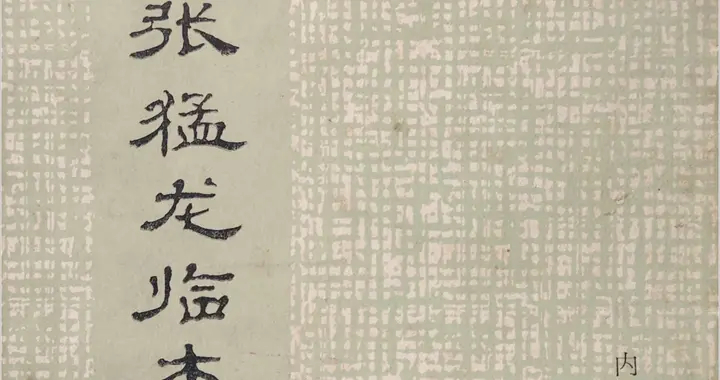 张猛龙临本
内